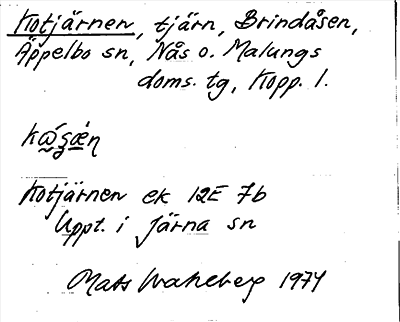 Kotjärnen, tjärn, Brindåsen,
Äppelbo sn, Nås o. Malungs
doms. tg, Kopp. l.
Kotjärnen ek 12E 7b
Uppt. i Järna sn
Mats Wahlberg 1974